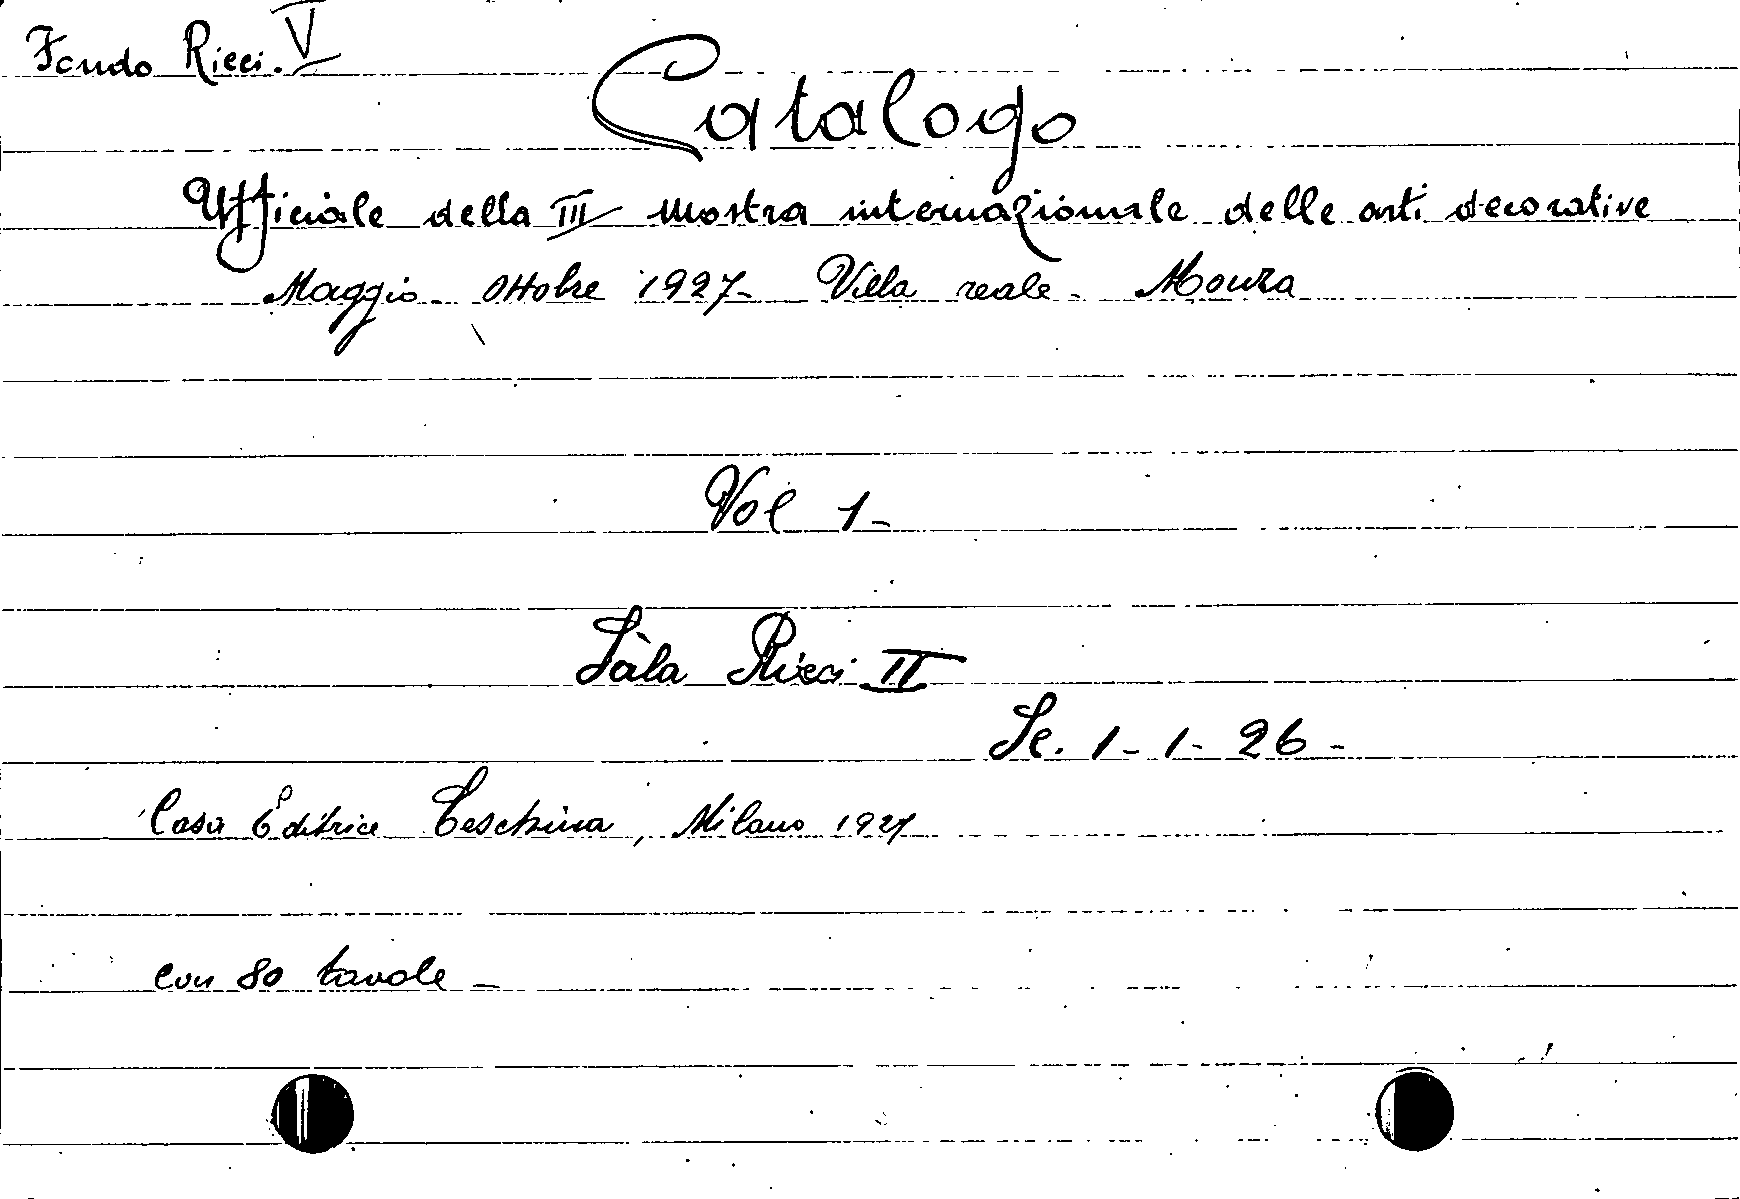 Fondo Ricci. V
Catalogo
Ufficiale della III mostra internazionale delle arti decorative
Maggio - Ottobre 1927 - Villa reale - Monza
Vol 1 -
Sala Ricci II
Sc. 1 - 1 - 26 -
Casa Editrice Ceschina, Milano 1927
con 80 tavole -